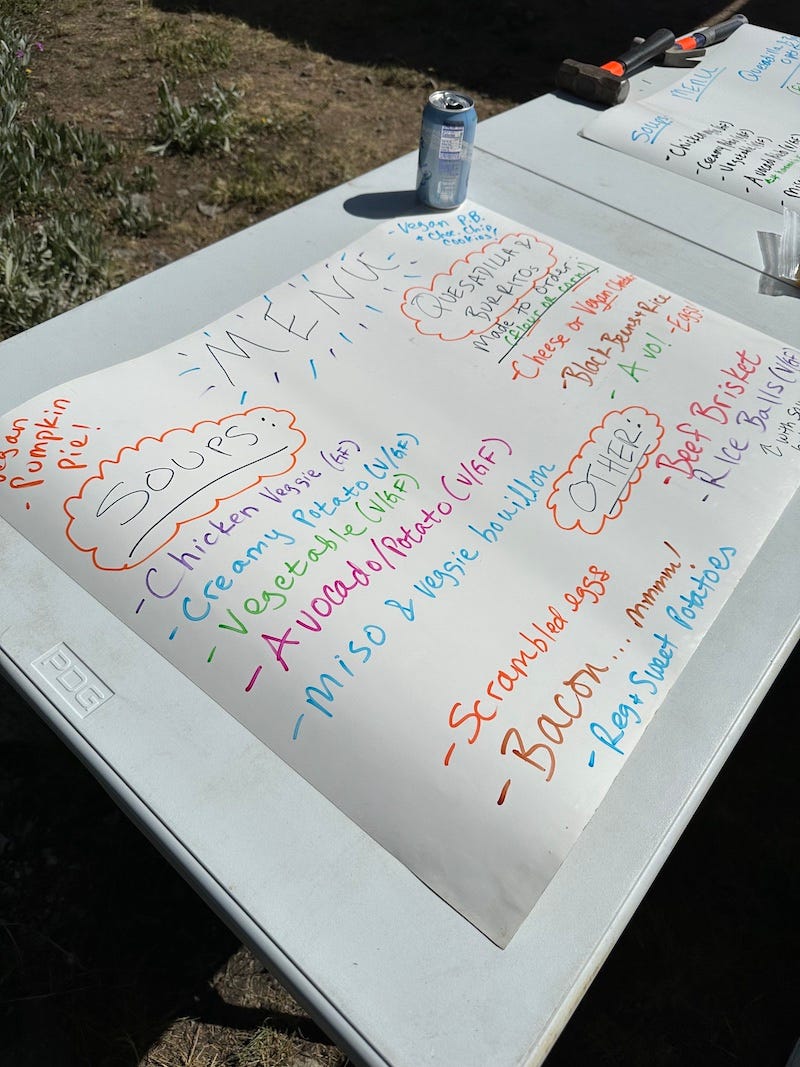 MENU
- Vegan P.B.
+ Choc. Chip
cookies!
QUESADILLA &
BURRITOS
Made to order:
(flour or corn)
- Cheese or Vegan
- Black Beans & Rice
- Avo!
- Eggs!
Vegan
- Pumpkin
Pie!
SOUPS:
- Chicken Veggie (GF)
- Creamy Potato (V/GF)
- Vegetable (V/GF)
- Avocado/Potato (V/GF)
- Miso & veggie bouillon
OTHER:
- Beef Brisket
- Rice Balls (V/GF)
with
- Scrambled eggs
- Bacon... mmmm!
- Reg & Sweet Potatoes
PDG
MENU
Soups
Quesadilla